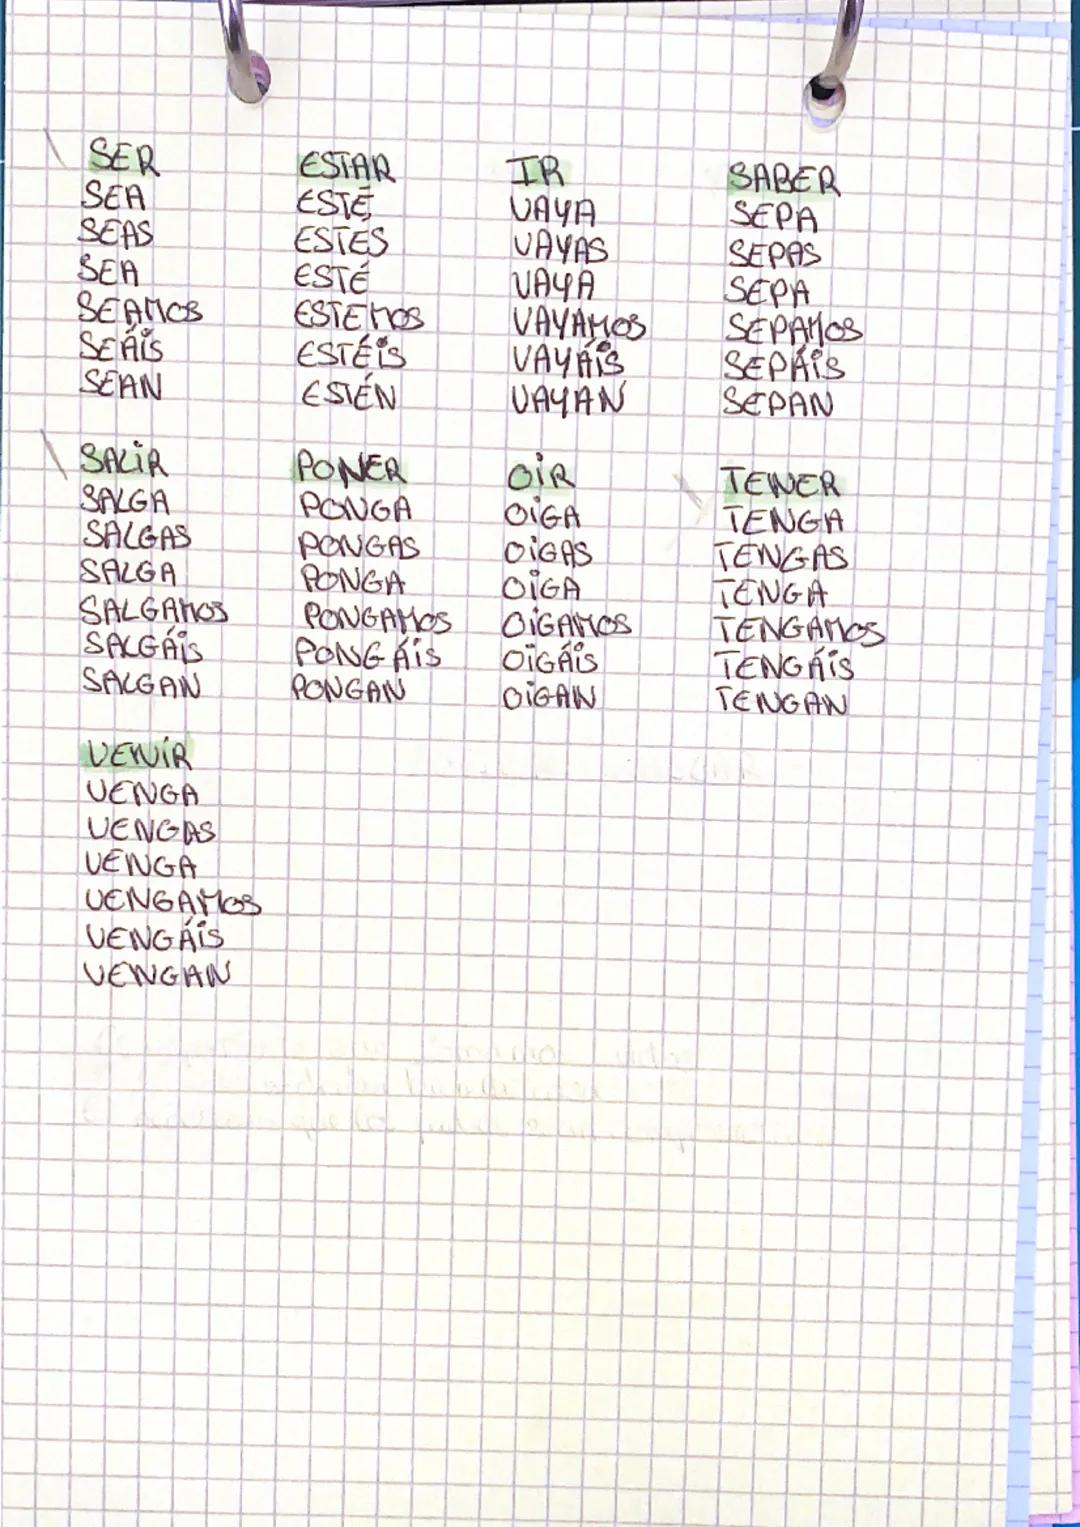 SER
SEA
SEAS
SEA
SEAMOS
SEÁIS
SEAN
ESTAR
ESTÉ
ESTES
ESTÉ
ESTEMOS
ESTÉIS
ESTÉN
IR
VAYA
VAYAS
VAYA
VAYAMOS
VAYÁIS
VAYAN
SABER
SEPA
SEPAS
SEPA
SEPAMOS
SEPÁIS
SEPAN
SALIR
SALGA
SALGAS
SALGA
SALGAMOS
SALGÁIS
SALGAN
PONER
PONGA
PONGAS
PONGA
PONGAMOS
PONGÁIS
PONGAN
OIR
OIGA
OIGAS
OIGA
OIGAMOS
OIGÁIS
OIGAN
TENER
TENGA
TENGAS
TENGA
TENGAMOS
TENGÁIS
TENGAN
VENIR
VENGA
VENGAS
VENGA
VENGAMOS
VENGÁIS
VENGAN